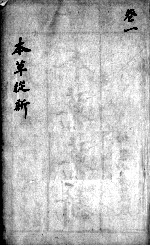 卷一
本草從新